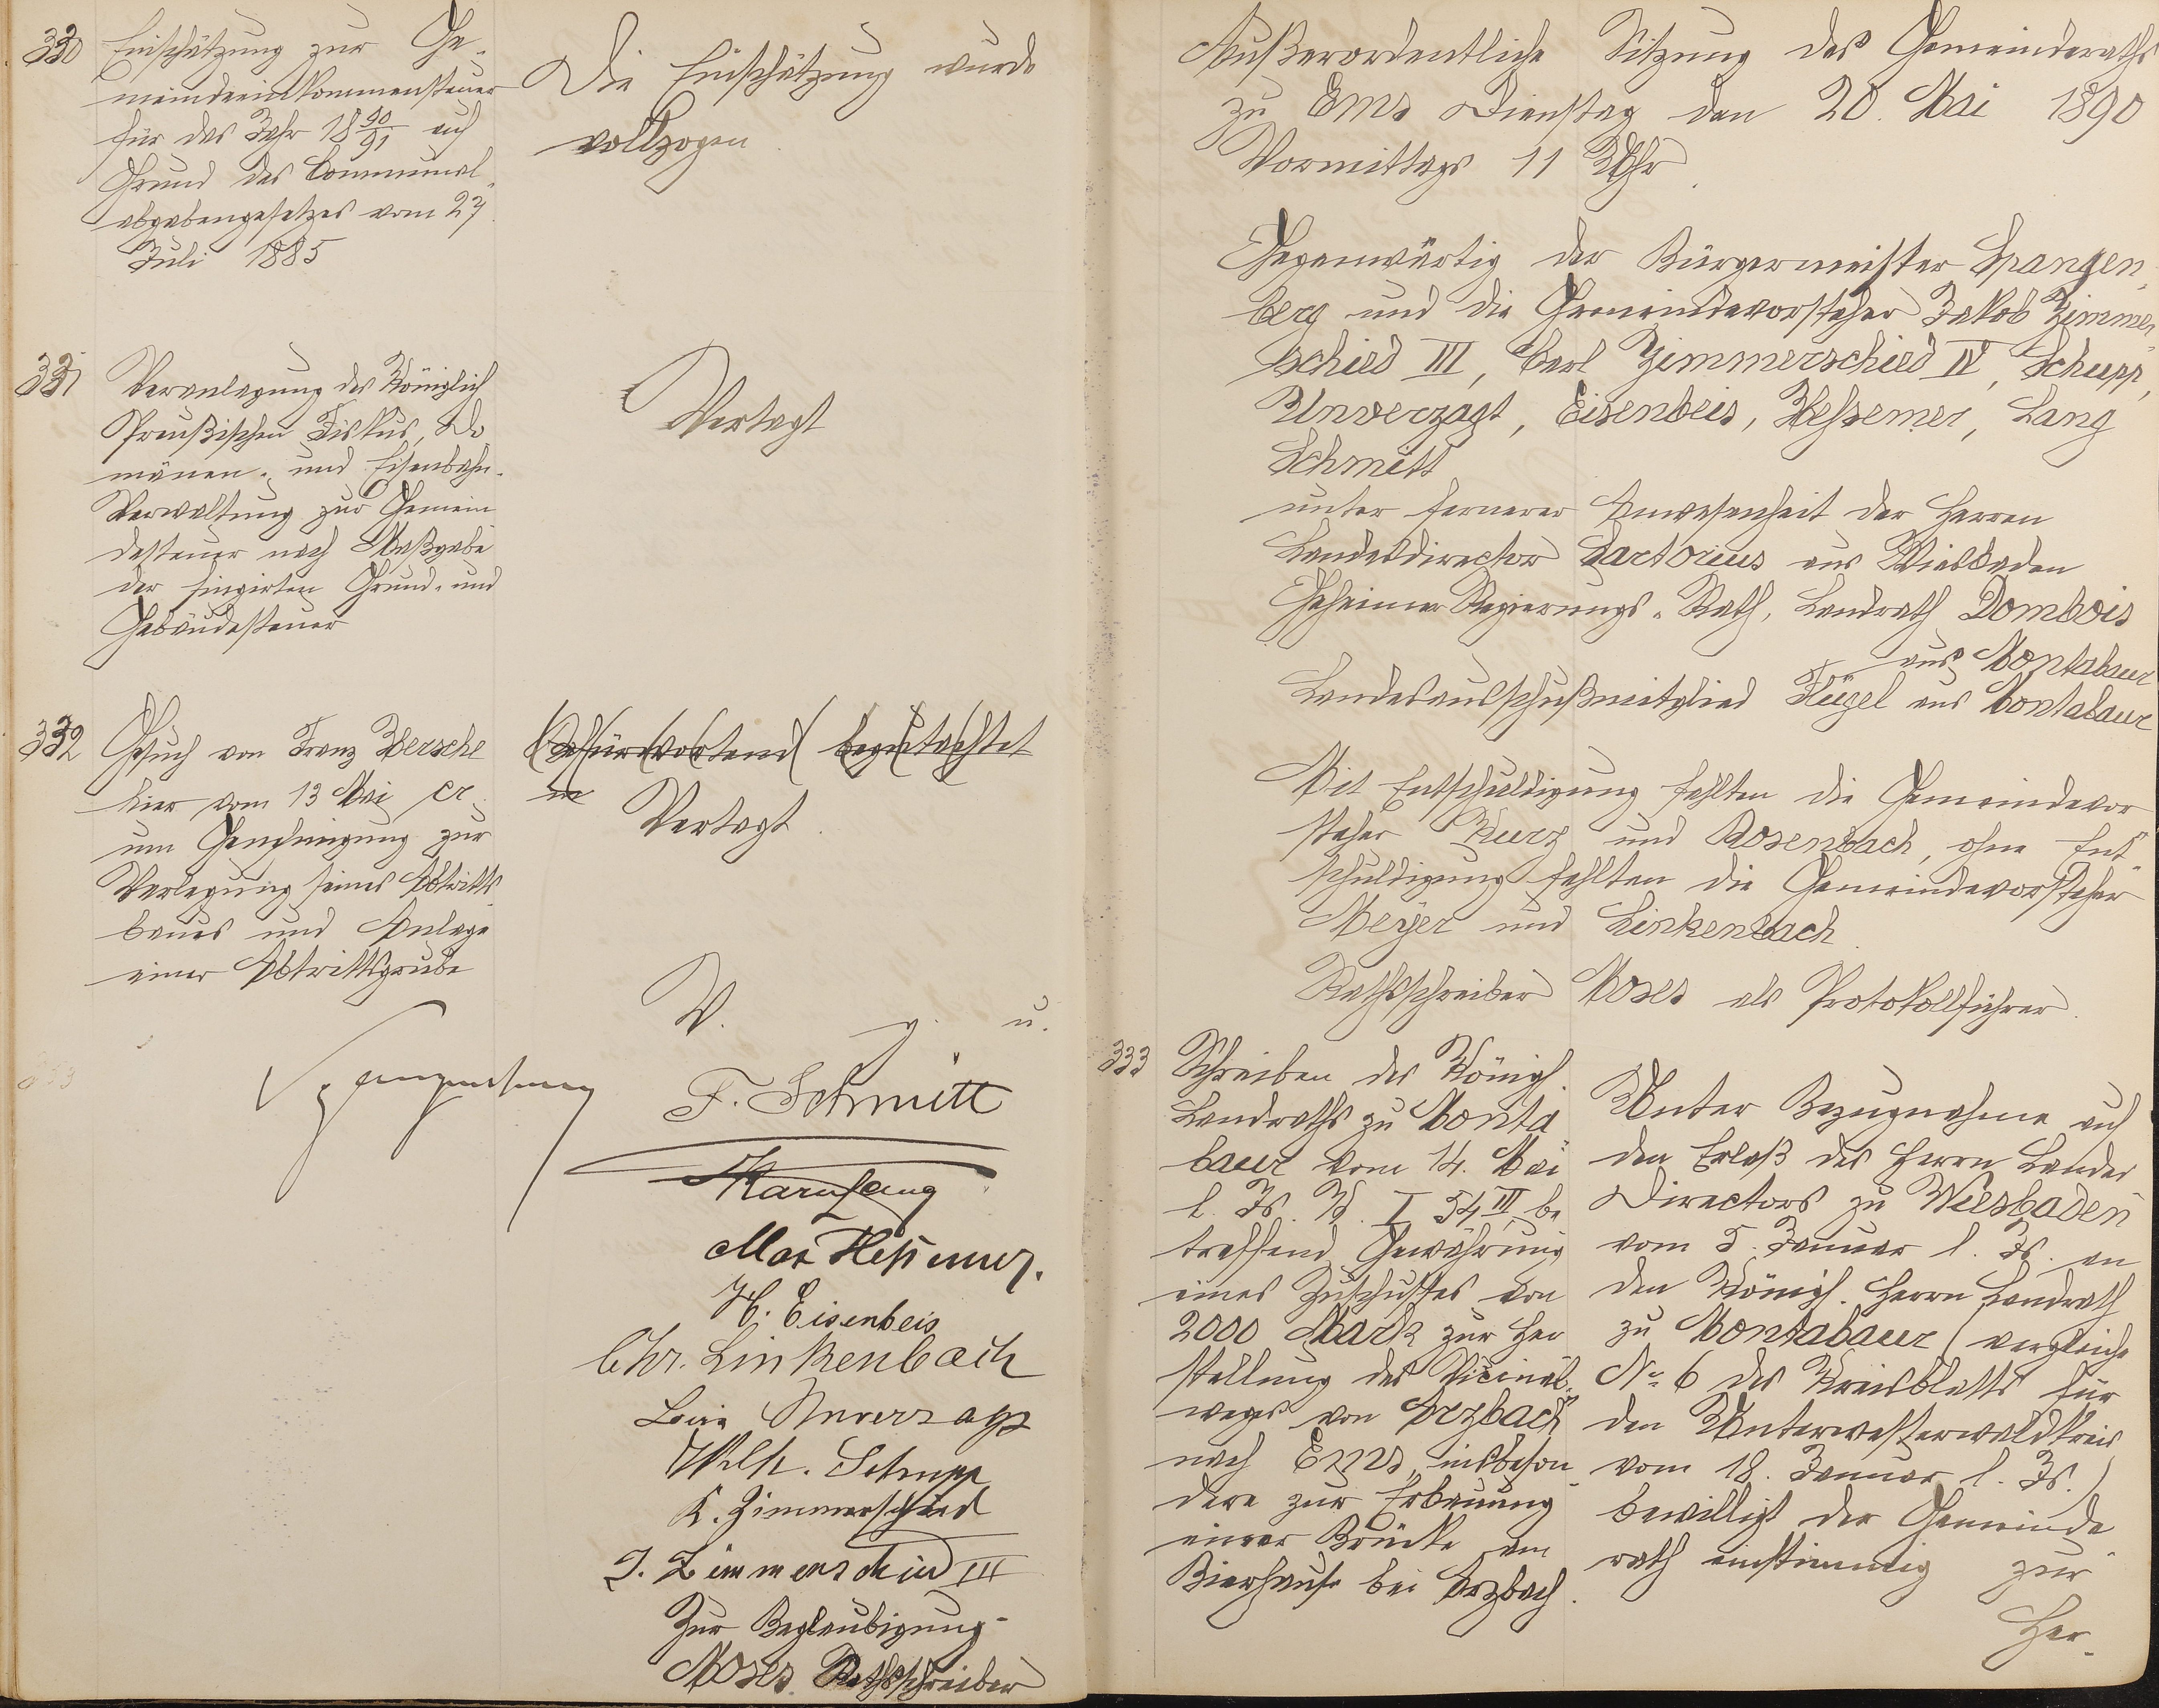 330 Einschätzung zur Ge-
meindeeinkommensteuer
für das Jahr 18 90/91 auf
Grund des Communal-
abgabengesetzes vom 27.
Juli 1885
Die Einschätzung wurde
vollzogen
331 Veranlagung des Königlich
Preußischen Fiskus, Do-
mänen- und Eisenbahn-
Verwaltung zur Gemein
desteuer nach Maßgabe
der fingirten Grund- und
Gebäudesteuer
Vertagt
332 Gesuch von Franz Hersche
hier vom 13 Mai cr.
um Genehmigung zur
Verlegung seines Abtritts
baues und Anlage
einer Abtrittsgrube
Befürwortend begutachtet
Vertagt.
V. g. u.
333
Spangenberg
F. Schmitt
Max Hessemer.
H. Eisenbeis
Chr. Linkenbach
Unverzagt
Wilh. Schupp
K. Zimmerschied
J. Zimmerschied III
Zur Beglaubigung
Moses Rathsschreiber
Außerordentliche Sitzung des Gemeinderaths
zu Ems Dienstag den 20. Mai 1890
Vormittags 11 Uhr.
Gegenwärtig der Bürgermeister Spangen-
berg und die Gemeindevorsteher Jakob Zimmer-
schied III, Carl Zimmerschied IV, Schupp,
Unverzagt, Eisenbeis, Hessemer, Lang
Schmitt
unter fernerer Anwesenheit der Herren
Landesdirector Sartorius aus Wiesbaden
Geheimer Regierungs-Rath, Landrath Dombois
aus Montabaur
Landesausschußmitglied Flügel aus Montabaur
Mit Entschuldigung fehlten die Gemeindevor
steher Kurz und Rosenbach, ohne Ent-
schuldigung fehlten die Gemeindevorsteher
Meyer und Linkenbach.
Rathsschreiber Moses als Protokollführer.
333 Schreiben des Königl.
Landraths zu Monta
baur vom 14. Mai
l. Js. K. I 54 III be
treffend Gewährung
eines Zuschusses von
2000 Mark zur Her
stellung des Vicinal-
weges von Arzbach
nach Ems, insbeson-
dere zur Erbauung
einer Brücke am
Bierhause bei Arzbach.
Unter Bezugnahme auf
den Erlaß des Herrn Landes
Directors zu Wiesbaden
vom 5. Januar l. Js. an
den Königl. Herrn Landrath
zu Montabaur (vergleiche
No 6 des Kreisblatts für
den Unterwesterwaldkreis
vom 18. Januar l. Js.)
bewilligt der Gemeinde
rath einstimmig zur
Her-